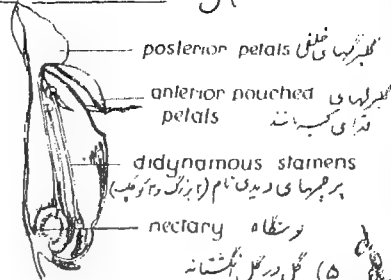 posterior petals گلبرگهای خلفی
anterior pouched گلبرگهای
petals
didynamous stamens
پرچمهای دیدی نام (۲ بزرگ و ۲ کوچک)
nectary نوشگاه
۵) گل در گل انگشتانه